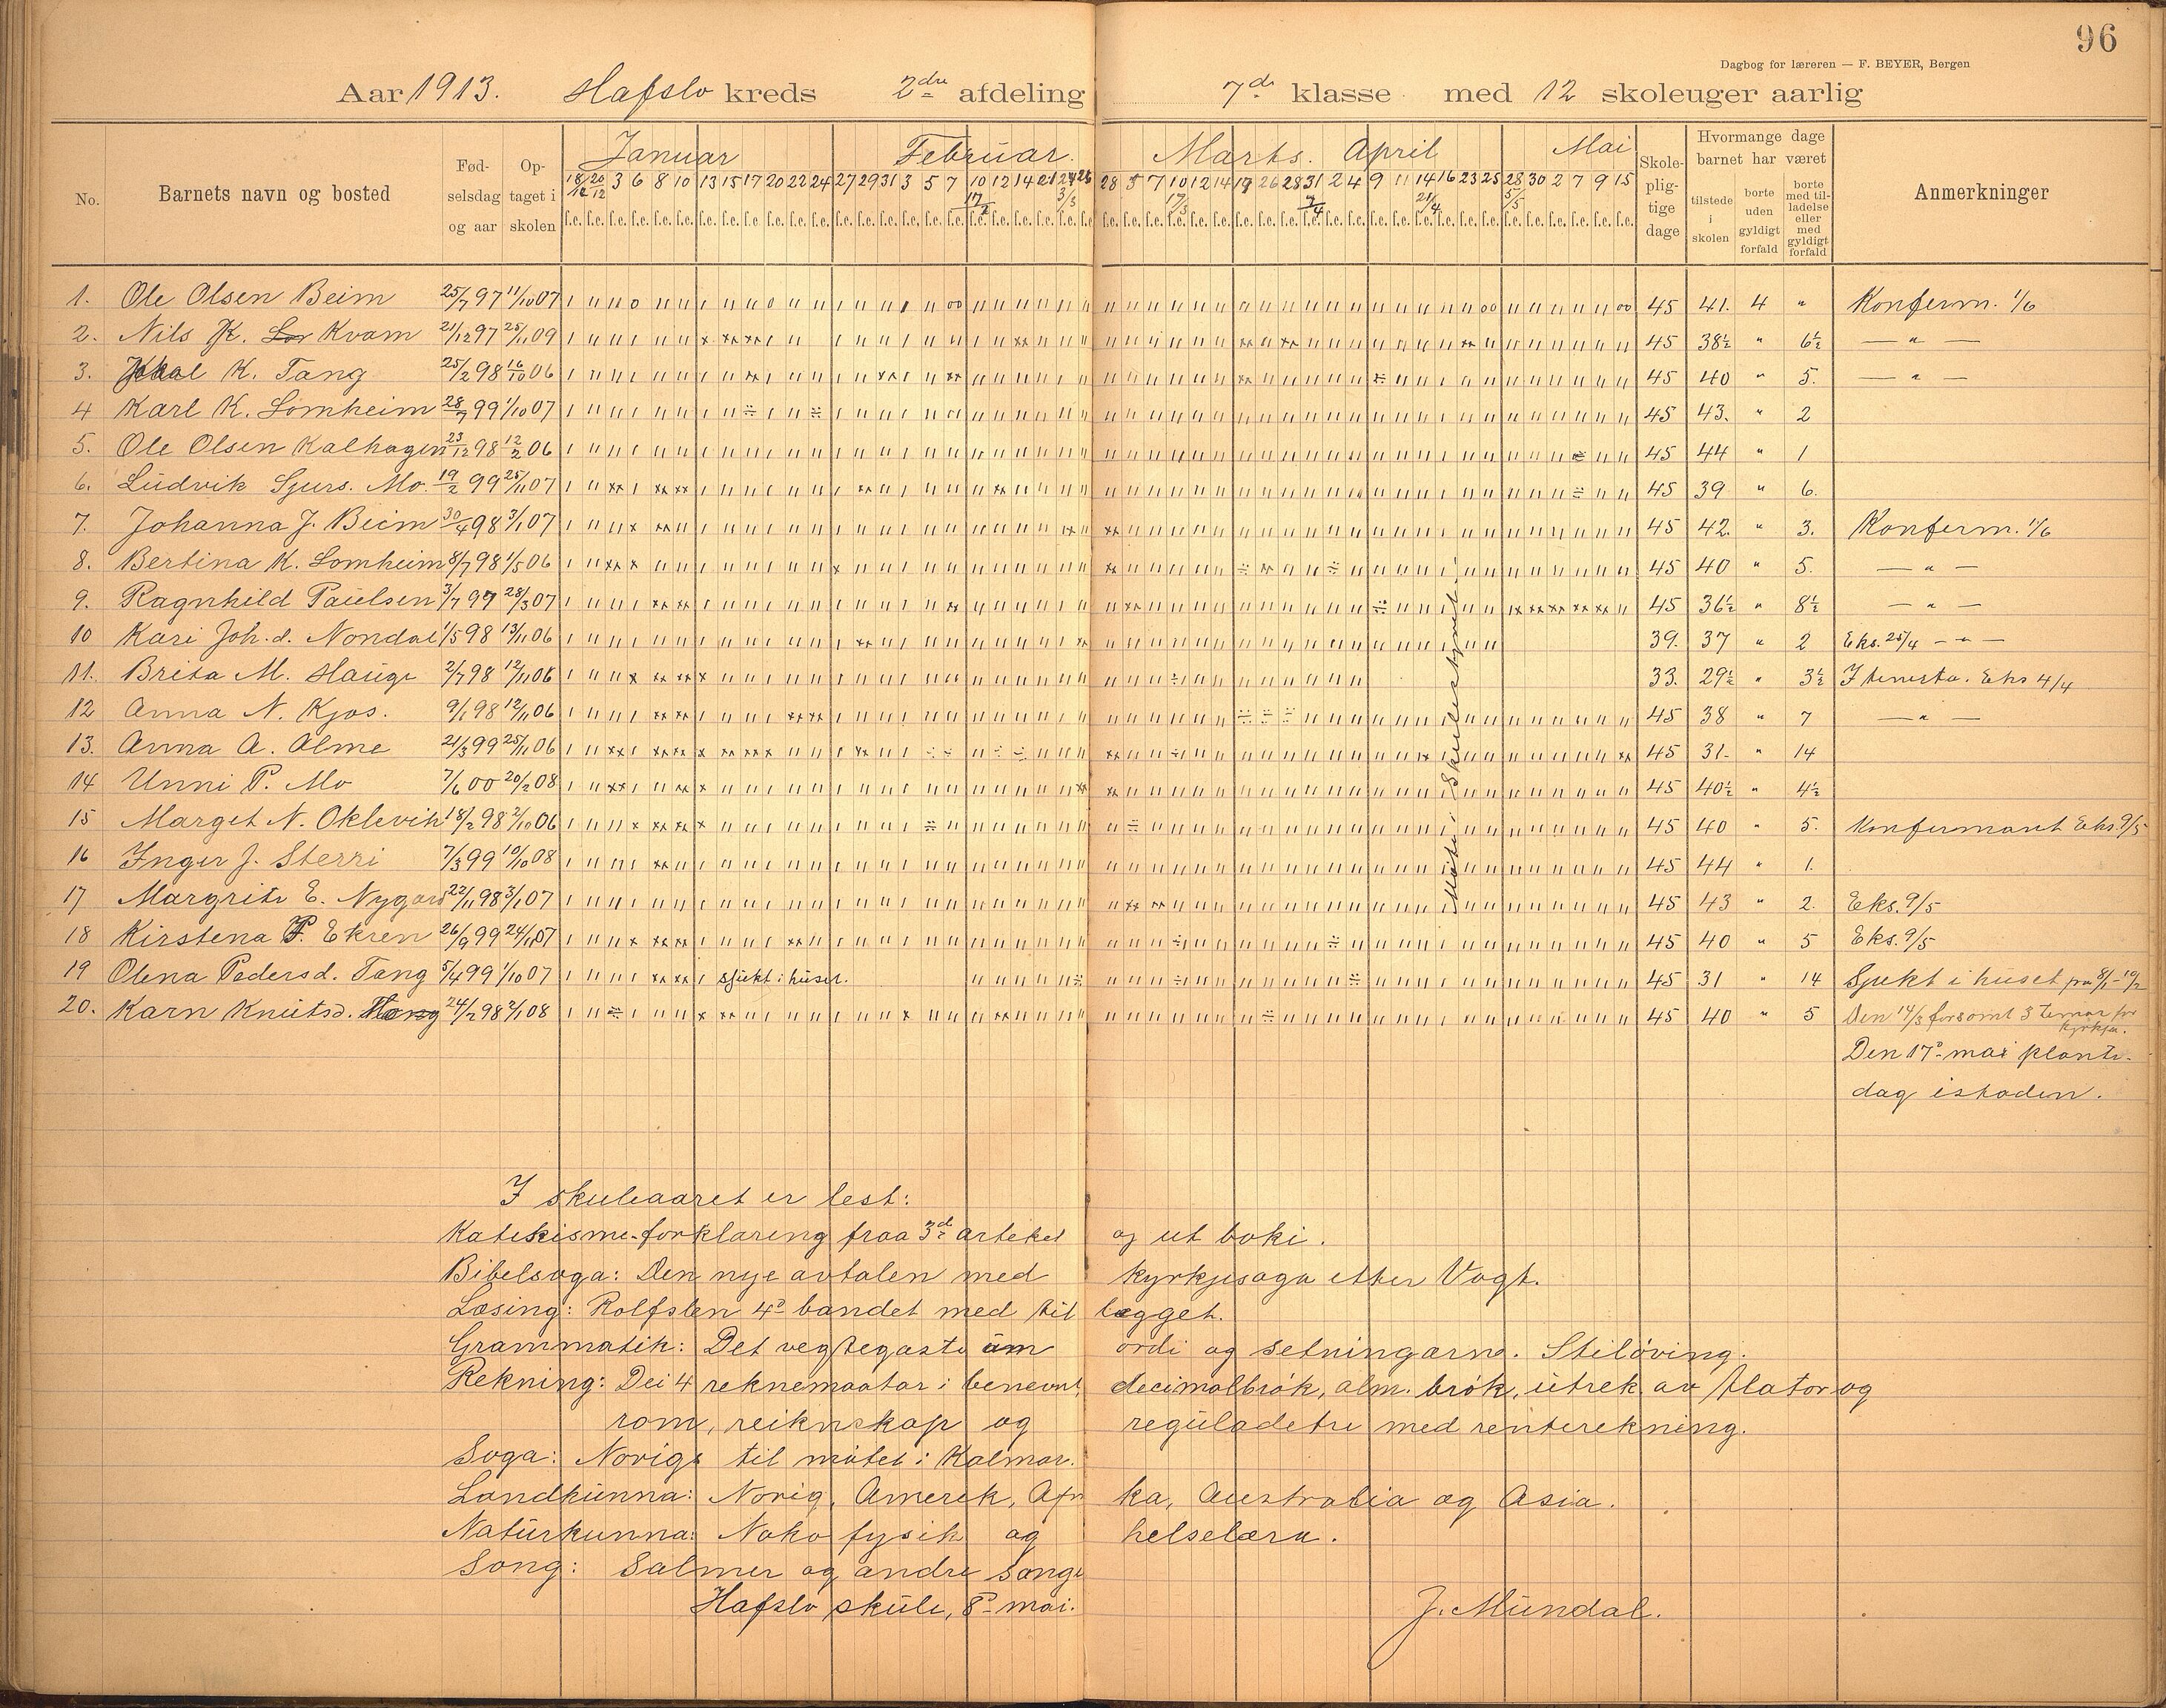 96
Dagbog for læreren — F. BEYER, Bergen
Aar 1913. Hafslo kreds 2dre afdeling 7de klasse med 12 skoleuger aarlig
No. Barnets navn og bosted Fødselsdag og aar Optaget i skolen Januar Februar. Marts. April Mai Skolepligtige dage Hvormange dage barnet har været tilstede i skolen borte uden gyldigt forfald borte med tilladelse eller med gyldigt forfald Anmerkninger
18/12 20/12 3 6 8 10 13 15 17 20 22 24 27 29 31 3 5 7 10 12 14 21 24 26 28 5 7 10 12 14 19 26 28 31 2 4 9 11 14 16 23 25 28 30 2 7 9 15
17/2 3/3 17/3 7/4 21/4 5/5
1. Ole Olsen Beim 25/7 97 11/10 07 45 41. 4 " Konferm. 1/6
2. Nils K. Kvam 21/12 97 25/11 09 45 38½ " 6½ — " —
3. K. Tang 25/2 98 16/10 06 45 40 " 5. — " —
4 Karl K. Lomheim 28/7 99 1/10 07 45 43. " 2
5. Ole Olsen Kalhagen 23/12 98 12/2 06 45 44 " 1
6. Ludvik Sjurs. Mo. 19/2 99 25/11 07 45 39 " 6.
7. Johanna J. Beim 30/4 98 3/1 07 45 42. " 3. Konferm. 1/6
8. Bertina K. Lomheim 8/7 98 1/5 06 45 40 " 5. — " —
9. Ragnhild Paulsen 3/7 97 28/3 07 45 36½ " 8½ — " —
10 Kari Joh.d. Nondal 1/5 98 13/11 06 39. 37 " 2 Eks. 25/4 — " —
11. Brita M. Hauge 2/7 98 12/11 06 33. 29½ " 3½ I tenesta. Eks 4/4
12 Anna N. Kjos. 9/1 98 12/11 06 45 38 " 7 — " —
13. Anna A. Alme 21/3 99 25/11 06 45 31. " 14
14 Unni P. Mo 7/6 00 20/2 08 45 40½ " 4½
15 Marget N. Oklevik 18/2 98 2/10 06 45 40 " 5. Konfermant Eks. 9/5
16 Inger J. Sterri 7/3 99 10/10 08 45 44 " 1.
17 Margrite E. Nygard 22/11 98 3/1 07 45 43 " 2. Eks. 9/5
18 Kirstena P. Ekren 26/9 99 24/1 07 45 40 " 5 Eks. 9/5
19 Olena Pedersd. Tang 5/4 99 1/10 07 sjukt i huset. 45 31 " 14 Sjukt i huset fra 8/1 - 10/2
20. Karn Knutsd. 24/2 98 2/1 08 45 40 " 5 Den 14/3 forsømt 3 temar for kyrkja.
Møte i Skulestyret
Den 17de mai plante-
dag istaden.
I skuleaaret er lest:
Katekisme-forklaring fraa 3de artekel og ut boki.
Bibelsoga: Den nye avtalen med kyrkjesoga etter Vogt.
Læsing: Rolfsen 4de bandet med tillægget.
Grammatik: Det vegtegaste um ordi og setningarne. Stiløving.
Rekning: Dei 4 reknemaatar i benevnt, decimalbrøk, alm. brøk, utrek. av flator og
rom, reiknskap og reguladetri med renterekning.
Soga: Norigs til møtet i Kalmar.
Landkunna: Norig, Amerik, Afrika, Australia og Asia.
Naturkunna: Noko fysik og helselæra.
Song: Salmer og andre songe
Hafslo skule, 8de mai. J. Mundal.